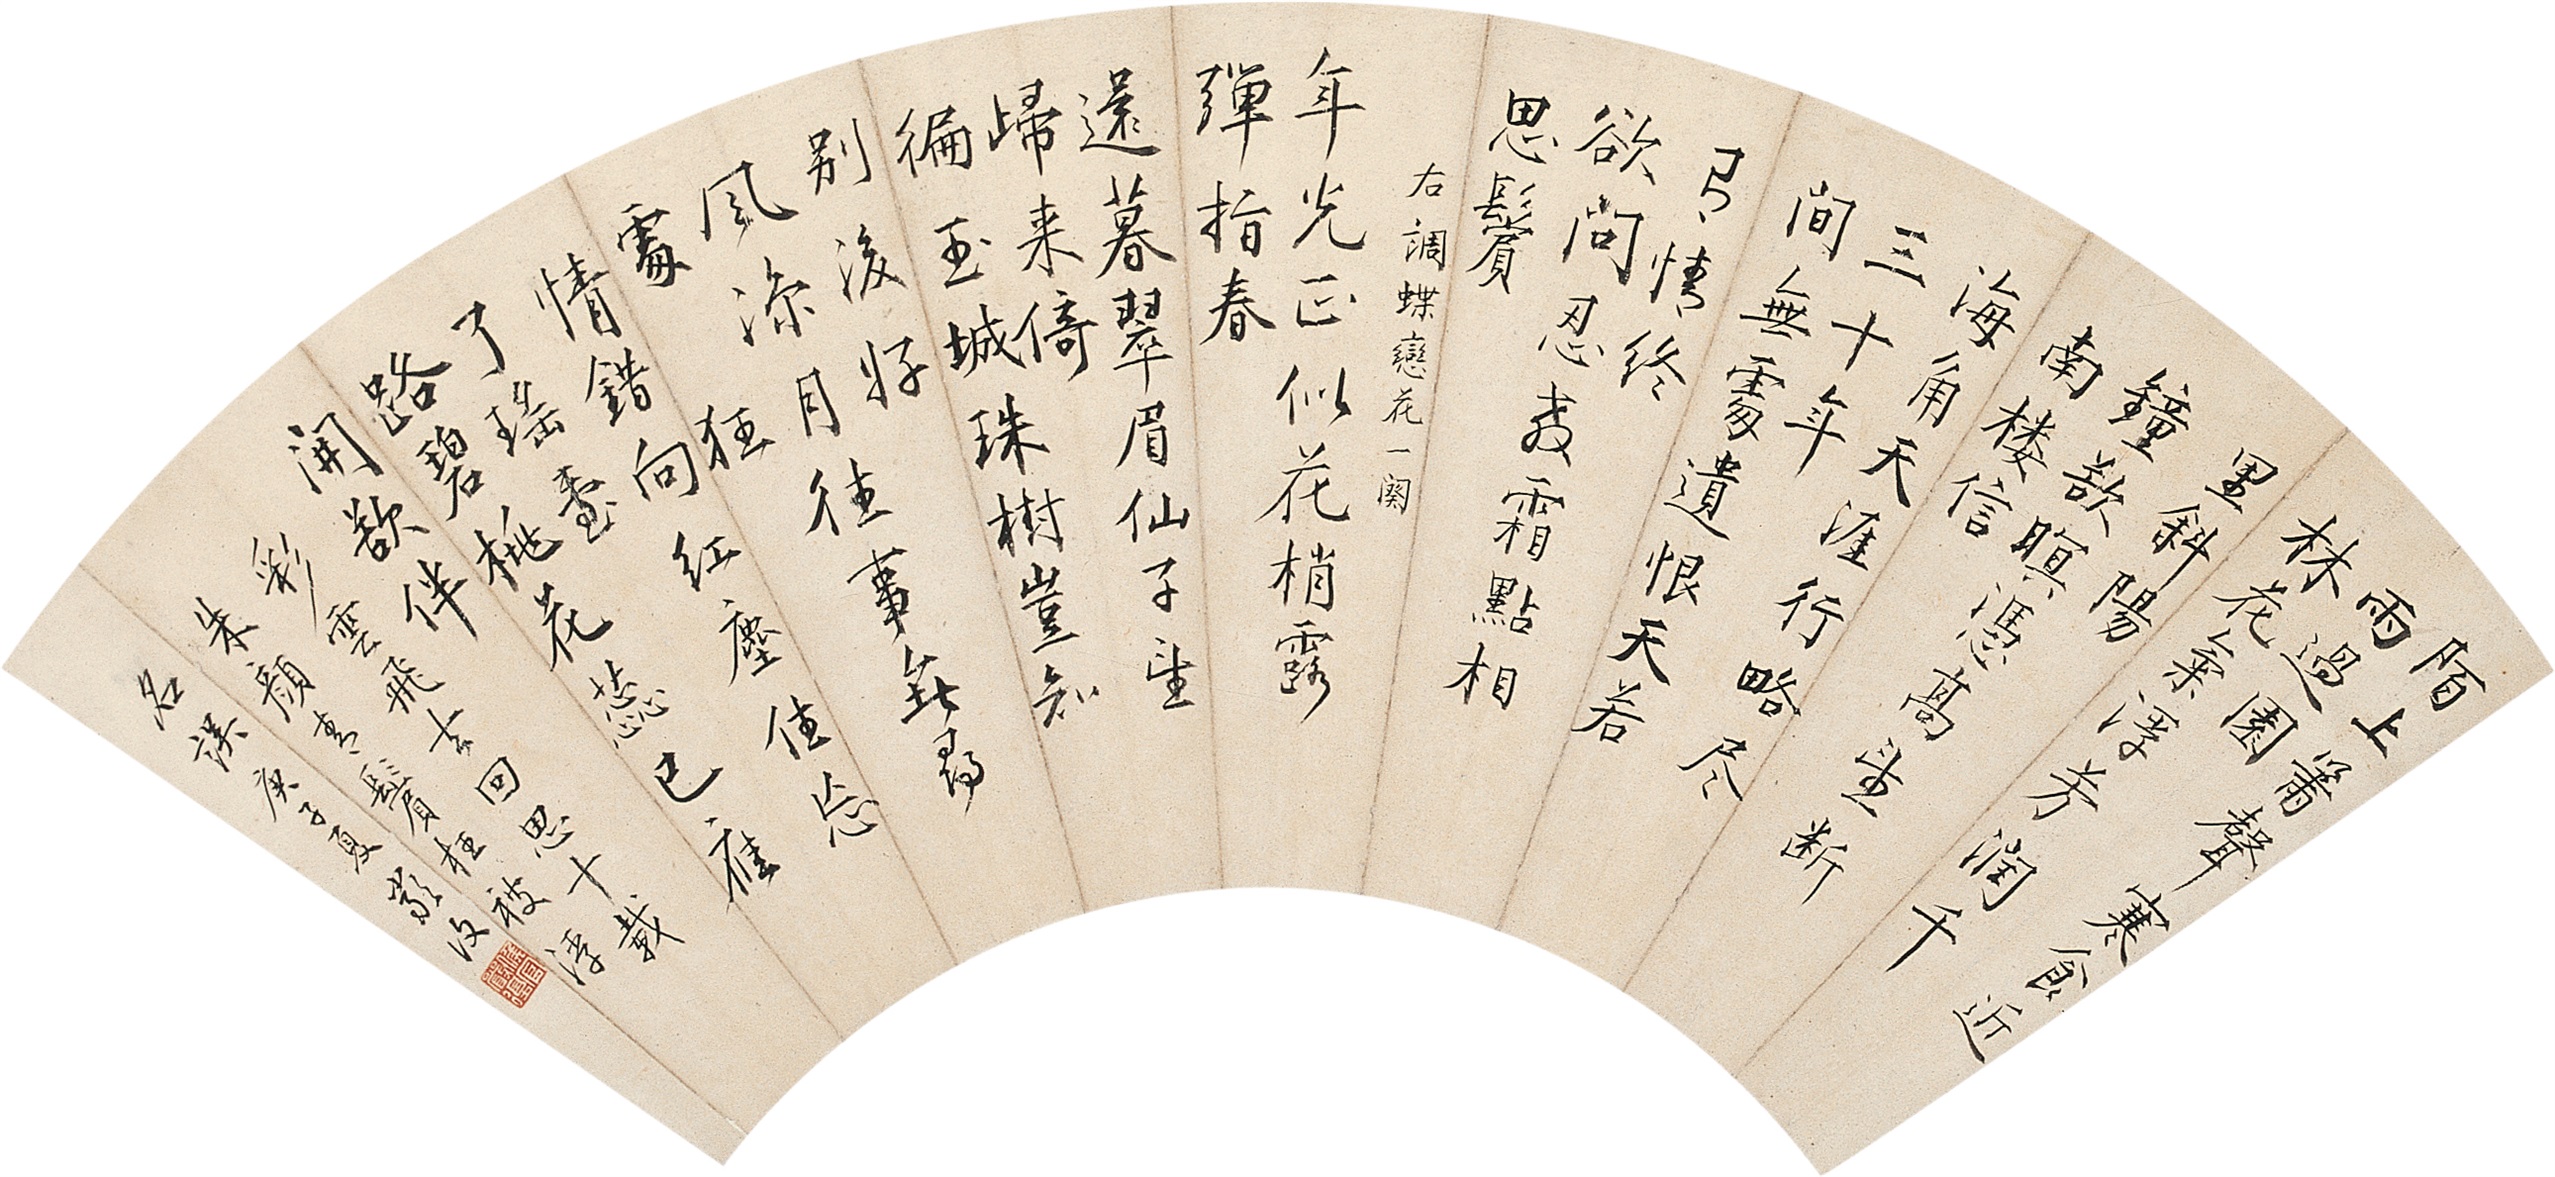 陌上簫聲寒食近
雨過園
林花氣浮芳潤千
里斜陽
鐘欲暝憑高望断
南楼信
海角天涯行略尽
三十年
間無處遺恨天若
有情終
欲問忍教霜點相
思鬢
右調蝶戀花一闋
年光正似花梢露
彈指春
還暮翠眉仙子望
歸来倚
徧玉城珠樹豈知
別後好
風涼月往事無尋
處狂
情錯向紅塵住忘
了瑤臺
路碧桃花蕊已應
開欲伴
彩雲飛去回思十載
朱顏青鬢枉被浮
名誤 庚子夏